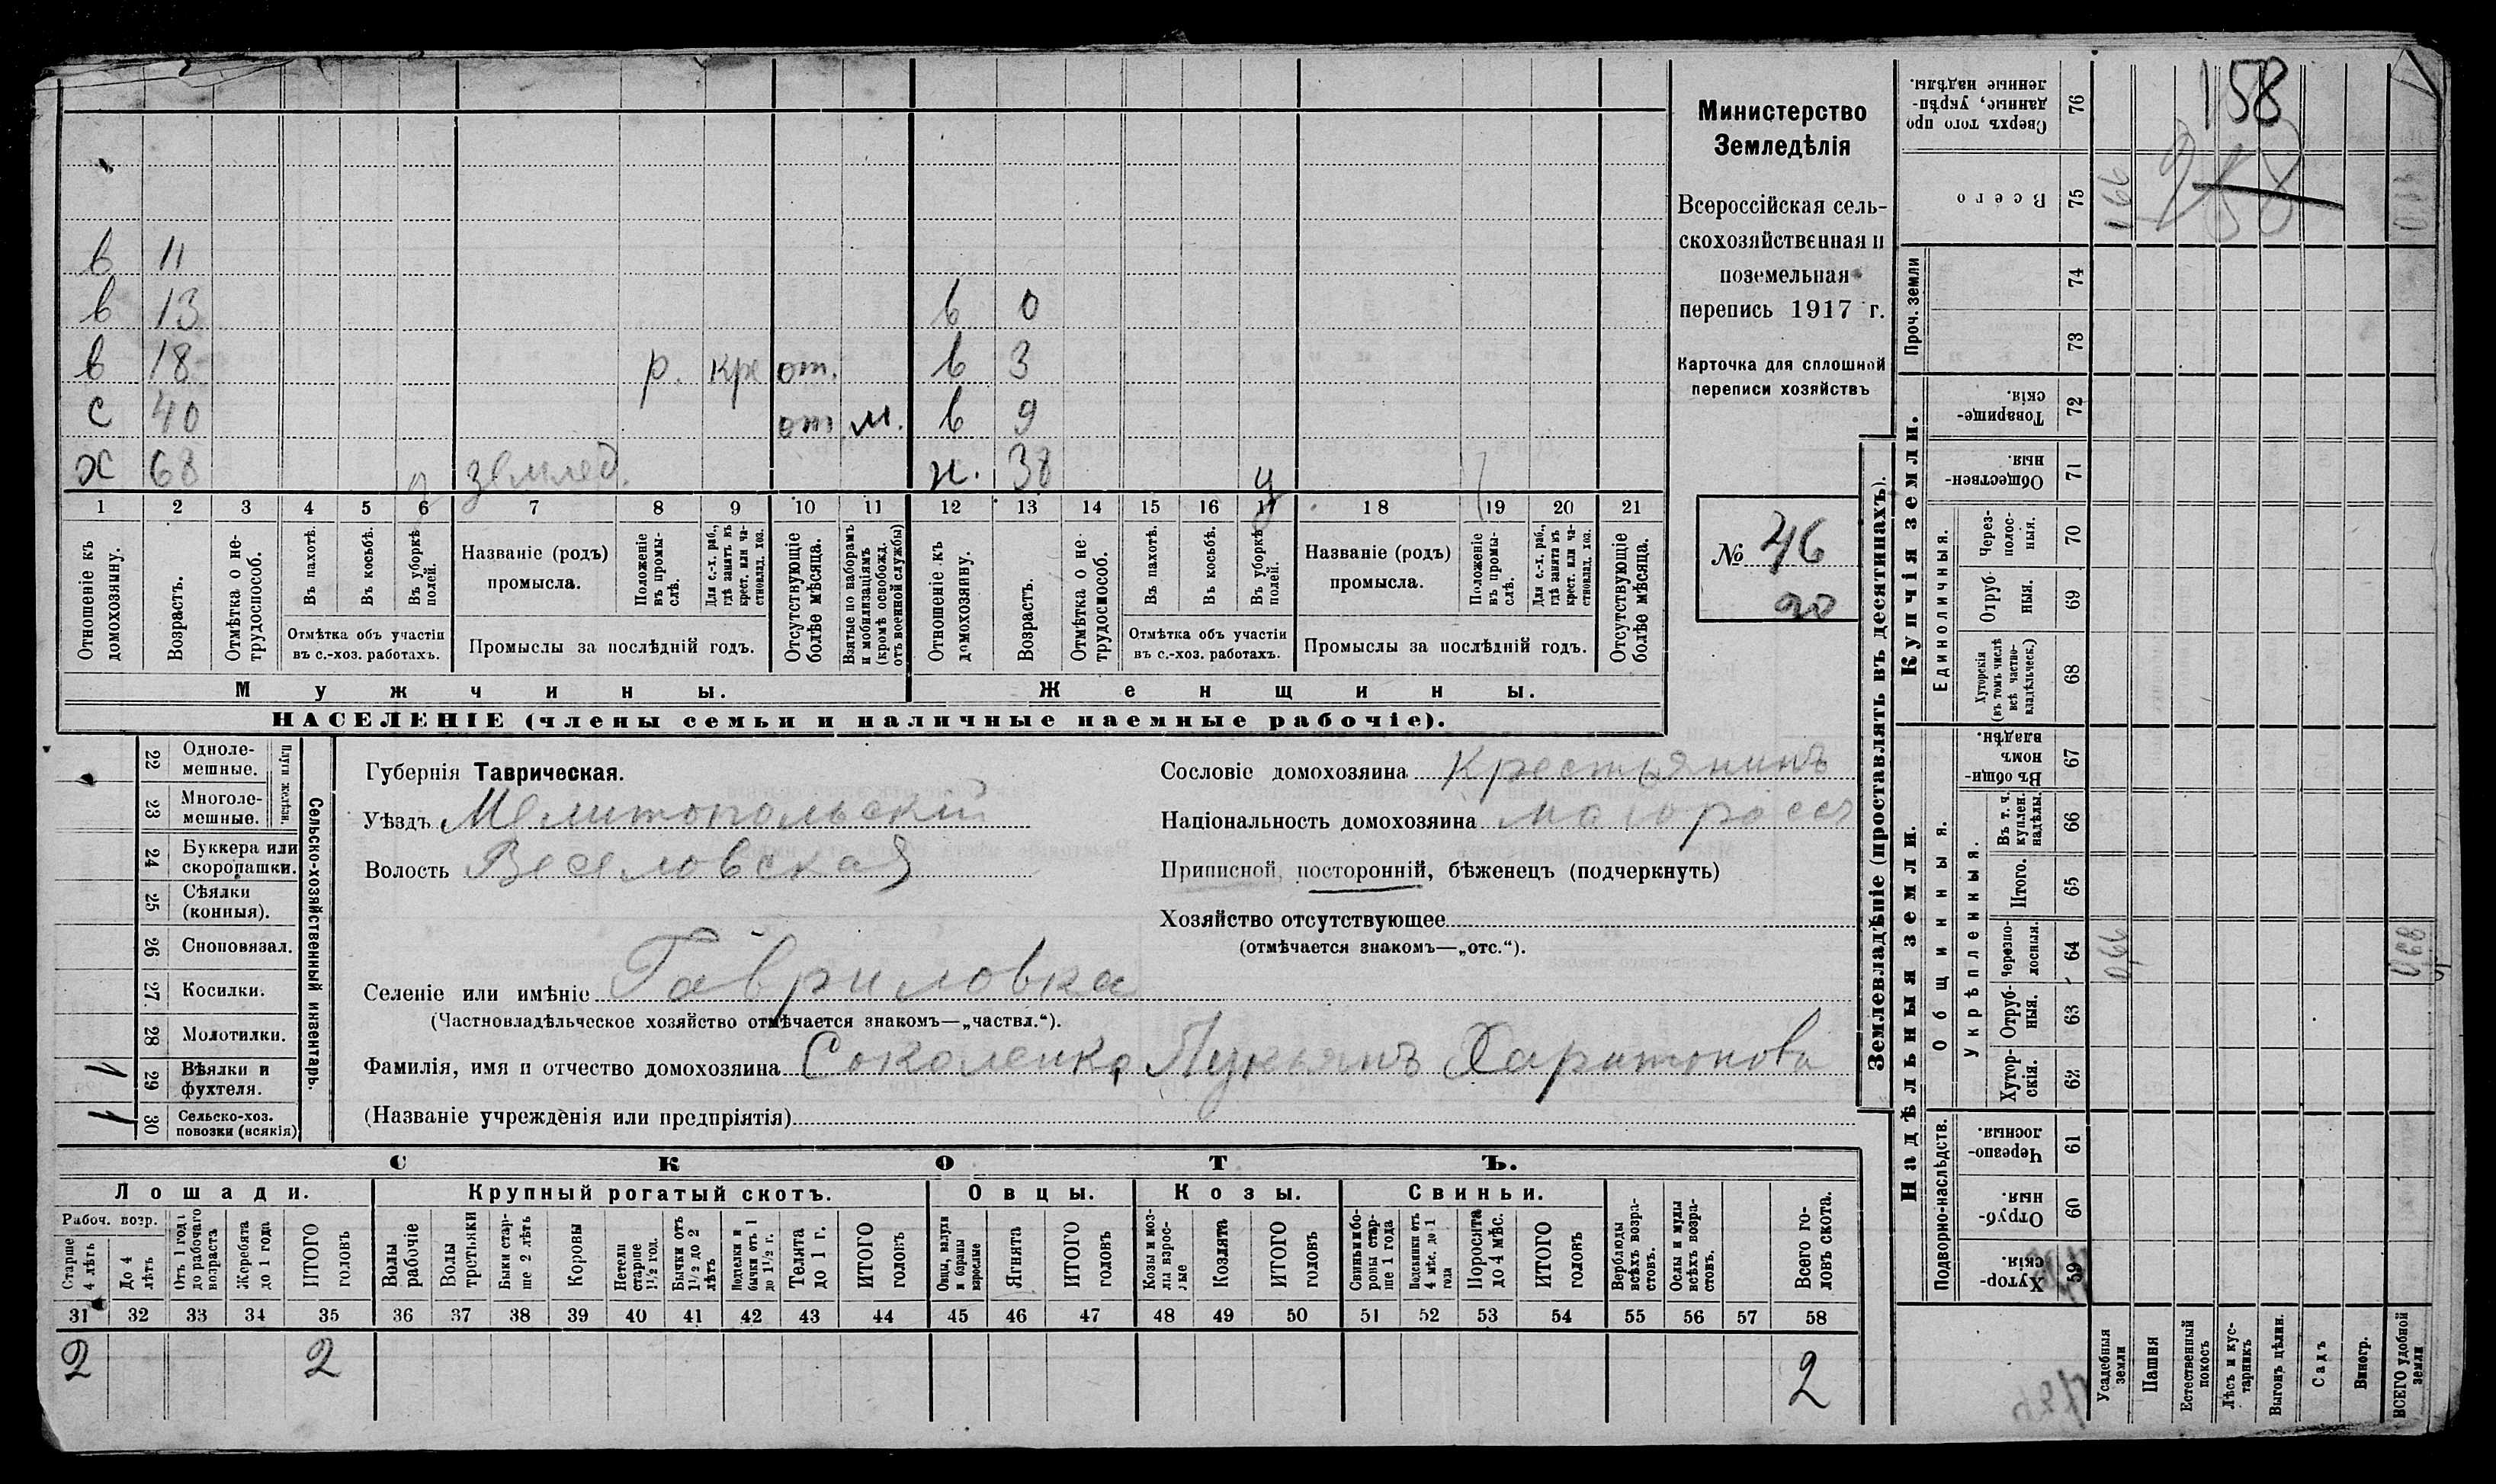 158
258
Министерство
Земледѣлія
Всероссійская сель-
скохозяйственная и
поземельная
перепись 1917 г.
Карточка для сплошной
переписи хозяйствъ
№ 46
90
в 11
в 13 в 0
в 18 р. кре от. в 3
с 40 от. м. в 9
х 68 землед. ж. 38 у
1 2 3 4 5 6 7 8 9 10 11 12 13 14 15 16 17 18 19 20 21
Отношеніе къ домохозяину.
Возрастъ.
Отмѣтка о не-трудоспособ.
Въ пахотѣ.
Въ косьбѣ.
Въ уборкѣ полей.
Отмѣтка объ участіи
въ с.-хоз. работахъ.
Названіе (родъ)
промысла.
Положеніе въ промы-слѣ.
Для с.-х. раб., гдѣ занятъ въ крест. или ча-стновлад. хоз.
Промыслы за послѣдній годъ.
Отсутствующіе болѣе мѣсяца.
Взятые по наборамъ и мобилизаціямъ (кромѣ освобожд. отъ военной службы)
Отношеніе къ домохозяину.
Возрастъ.
Отмѣтка о не-трудоспособ.
Въ пахотѣ.
Въ косьбѣ.
Въ уборкѣ полей.
Отмѣтка объ участіи
въ с.-хоз. работахъ.
Названіе (родъ)
промысла.
Положеніе въ промы-слѣ.
Для с.-х. раб., гдѣ занята въ крест. или ча-стновлад. хоз.
Промыслы за послѣдній годъ.
Отсутствующіе болѣе мѣсяца.
Мужчины. Женщины.
НАСЕЛЕНІЕ (члены семьи и наличные наемные рабочіе).
22 Одноле-мешные.
23 Многоле-мешные.
Плуги желѣзн.
24 Буккера или скоропашки.
25 Сѣялки (конныя).
26 Сноповязал.
27 Косилки.
28 Молотилки.
29 Вѣялки и фухтеля. 1
30 Сельско-хоз. повозки (всякія) 1
Сельско-хозяйственный инвентарь.
Губернія Таврическая.
Уѣздъ Мелитопольскій
Волость Веселовская
Селеніе или имѣніе Гавриловка
(Частновладѣльческое хозяйство отмѣчается знакомъ—„частвл.“).
Сословіе домохозяина Крестьянинъ
Національность домохозяина малороссъ
Приписной, посторонній, бѣженецъ (подчеркнуть)
Хозяйство отсутствующее
(отмѣчается знакомъ—„отс.“).
Фамилія, имя и отчество домохозяина Соколенко, Лукьянъ Харитоновъ
(Названіе учрежденія или предпріятія)
СКОТЪ.
Лошади. Крупный рогатый скотъ. Овцы. Козы. Свиньи.
Рабоч. возр.
Старше 4 лѣтъ
До 4 лѣтъ
Отъ 1 года до рабочаго возраста
Жеребята до 1 года
ИТОГО головъ
Волы рабочіе
Волы третьяки
Быки стар-ше 2 лѣтъ
Коровы
Нетели старше 1½ год.
Бычки отъ 1½ до 2 лѣтъ
Подтелки и бычки отъ 1 до 1½ г.
Телята до 1 г.
ИТОГО головъ
Овцы, валухи и бараны взрослые
Ягнята
ИТОГО головъ
Козы и коз-лы взрос-лые
Козлята
ИТОГО головъ
Свиньи и бо-ровы стар-ше 1 года
Подсвинки отъ 4 мѣс. до 1 года
Поросята до 4 мѣс.
ИТОГО головъ
Верблюды всѣхъ возра-стовъ.
Ослы и мулы всѣхъ возра-стовъ.
Всего го-ловъ скота.
31 32 33 34 35 36 37 38 39 40 41 42 43 44 45 46 47 48 49 50 51 52 53 54 55 56 57 58
2 2 2
Землевладѣніе (проставлять въ десятинахъ).
Купчія земли.
Надѣльныя земли.
76 Сверхъ того про данные, укрѣп-ленные надѣлы.
75 Всего
Проч. земли
74
73
72 Товарище-скія.
71 Обществен-ныя.
Единоличныя.
70 Через-полос-ныя.
69 Отруб-ныя.
68 Хуторскія (въ томъ числѣ всѣ частно-владѣльческ.)
67 Въ общин-номъ владѣн.
Общинныя.
Укрѣпленныя.
66 Въ т. ч. куплен. надѣлы.
65 Итого.
64 Черезпо-лосныя. 066
63 Отруб-ныя.
62 Хутор-скія.
Подворно-наслѣдств.
61 Черезпо-лосныя.
60 Отруб-ныя.
59 Хутор-скія.
Усадебныя земли
Пашня
Естественный покосъ
Лѣсъ и кус-тарникъ
Выгонъ цѣлин.
Садъ
Виногр.
ВСЕГО удобной земли